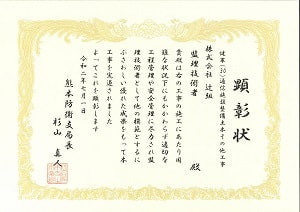 顕彰状
健軍(30)通信施設整備土木その他工事
株式会社 辻組
監理技術者
殿
貴殿は右の工事の施工にあたり困
難な状況下にもかかわらず適切な
工程管理や安全管理に尽力され監
理技術者として他の模範とするに
ふさわしい優れた成果をもって本
工事を完遂されました
よってこれを顕彰します
令和二年七月一日
熊本防衛支局長
杉山 真人